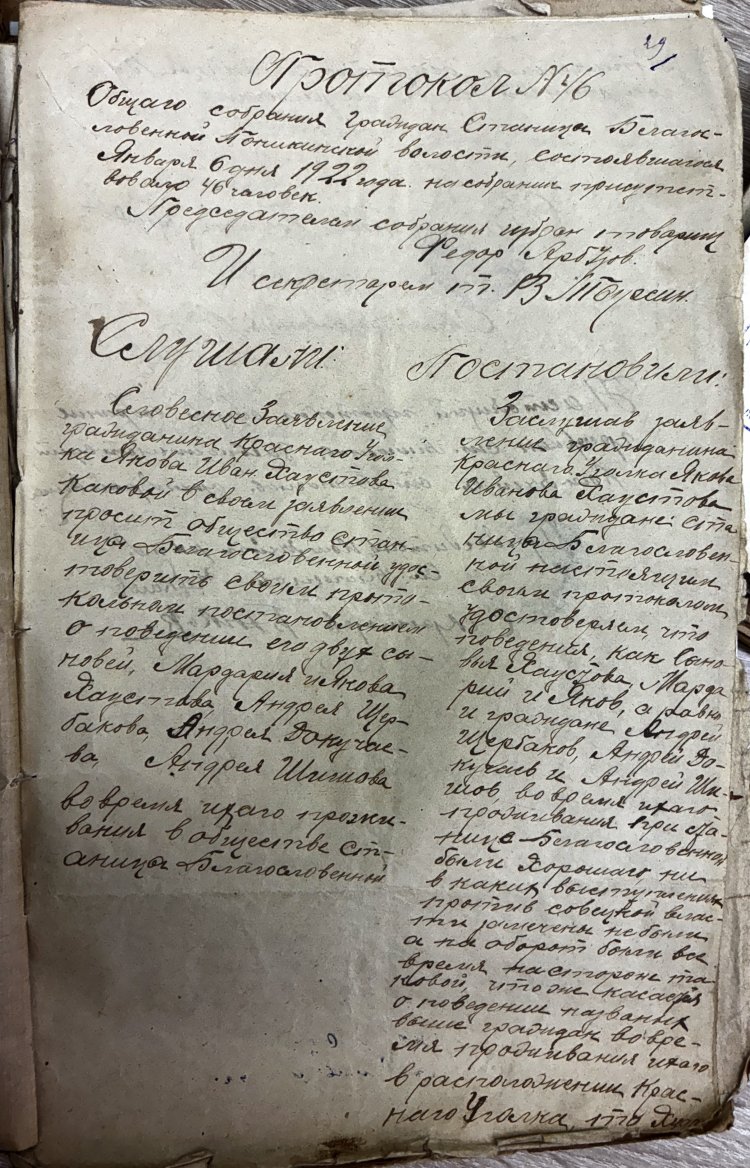 29
Протокол №46
Общаго собрания граждан Станицы Благос-
ловенной Поникинской волости, состоявшагося
Января 6 дня 1922 года. на собрании присутст-
вовало 46 человек.
Председателем собрания избран товарищ
Федор Арбузов.
И секретарем т. В
Слушали:
Словесное Заявление
гражданина Краснаго Угол-
ка Якова Иван. Хаустова
Каковой в своем заявлении
просит общество Стан-
ица Благословенной удос-
товерить своим прото-
кольным постановлением
о поведении его двух сы-
новей, Мардария и Якова
Хаустова, Андрея Щер-
бакова, Андрея Докучае-
ва, Андрея Шишова
во время ихаго прожи-
вания в обществе Ст-
аница Благословенной
Постановили:
Заслушав заяв-
ление гражданина
Краснаго Уголка Якова
Иванова Хаустова
мы граждане Ста
ница Благословен-
ной настоящим
своим протоколом
удостоверяем, что
поведения, как Сыно-
вья Хаустова, Марда
рий и Яков, а равно
и граждане Андрей
Щербаков, Андрей До-
кучаев и Андрей Ши-
шов, во время ихаго
продживания при Ста-
нице Благословенной
были Хорошаго ни
в каких выступлениях
против совецкой влас-
ти замечены небыли
а на оборот были все
время на стороне та
ковой, что же касаетя
о поведении названых
выше граждан во вре-
мя продживания ихаго
в расположении Крас-
наго Уголка, то